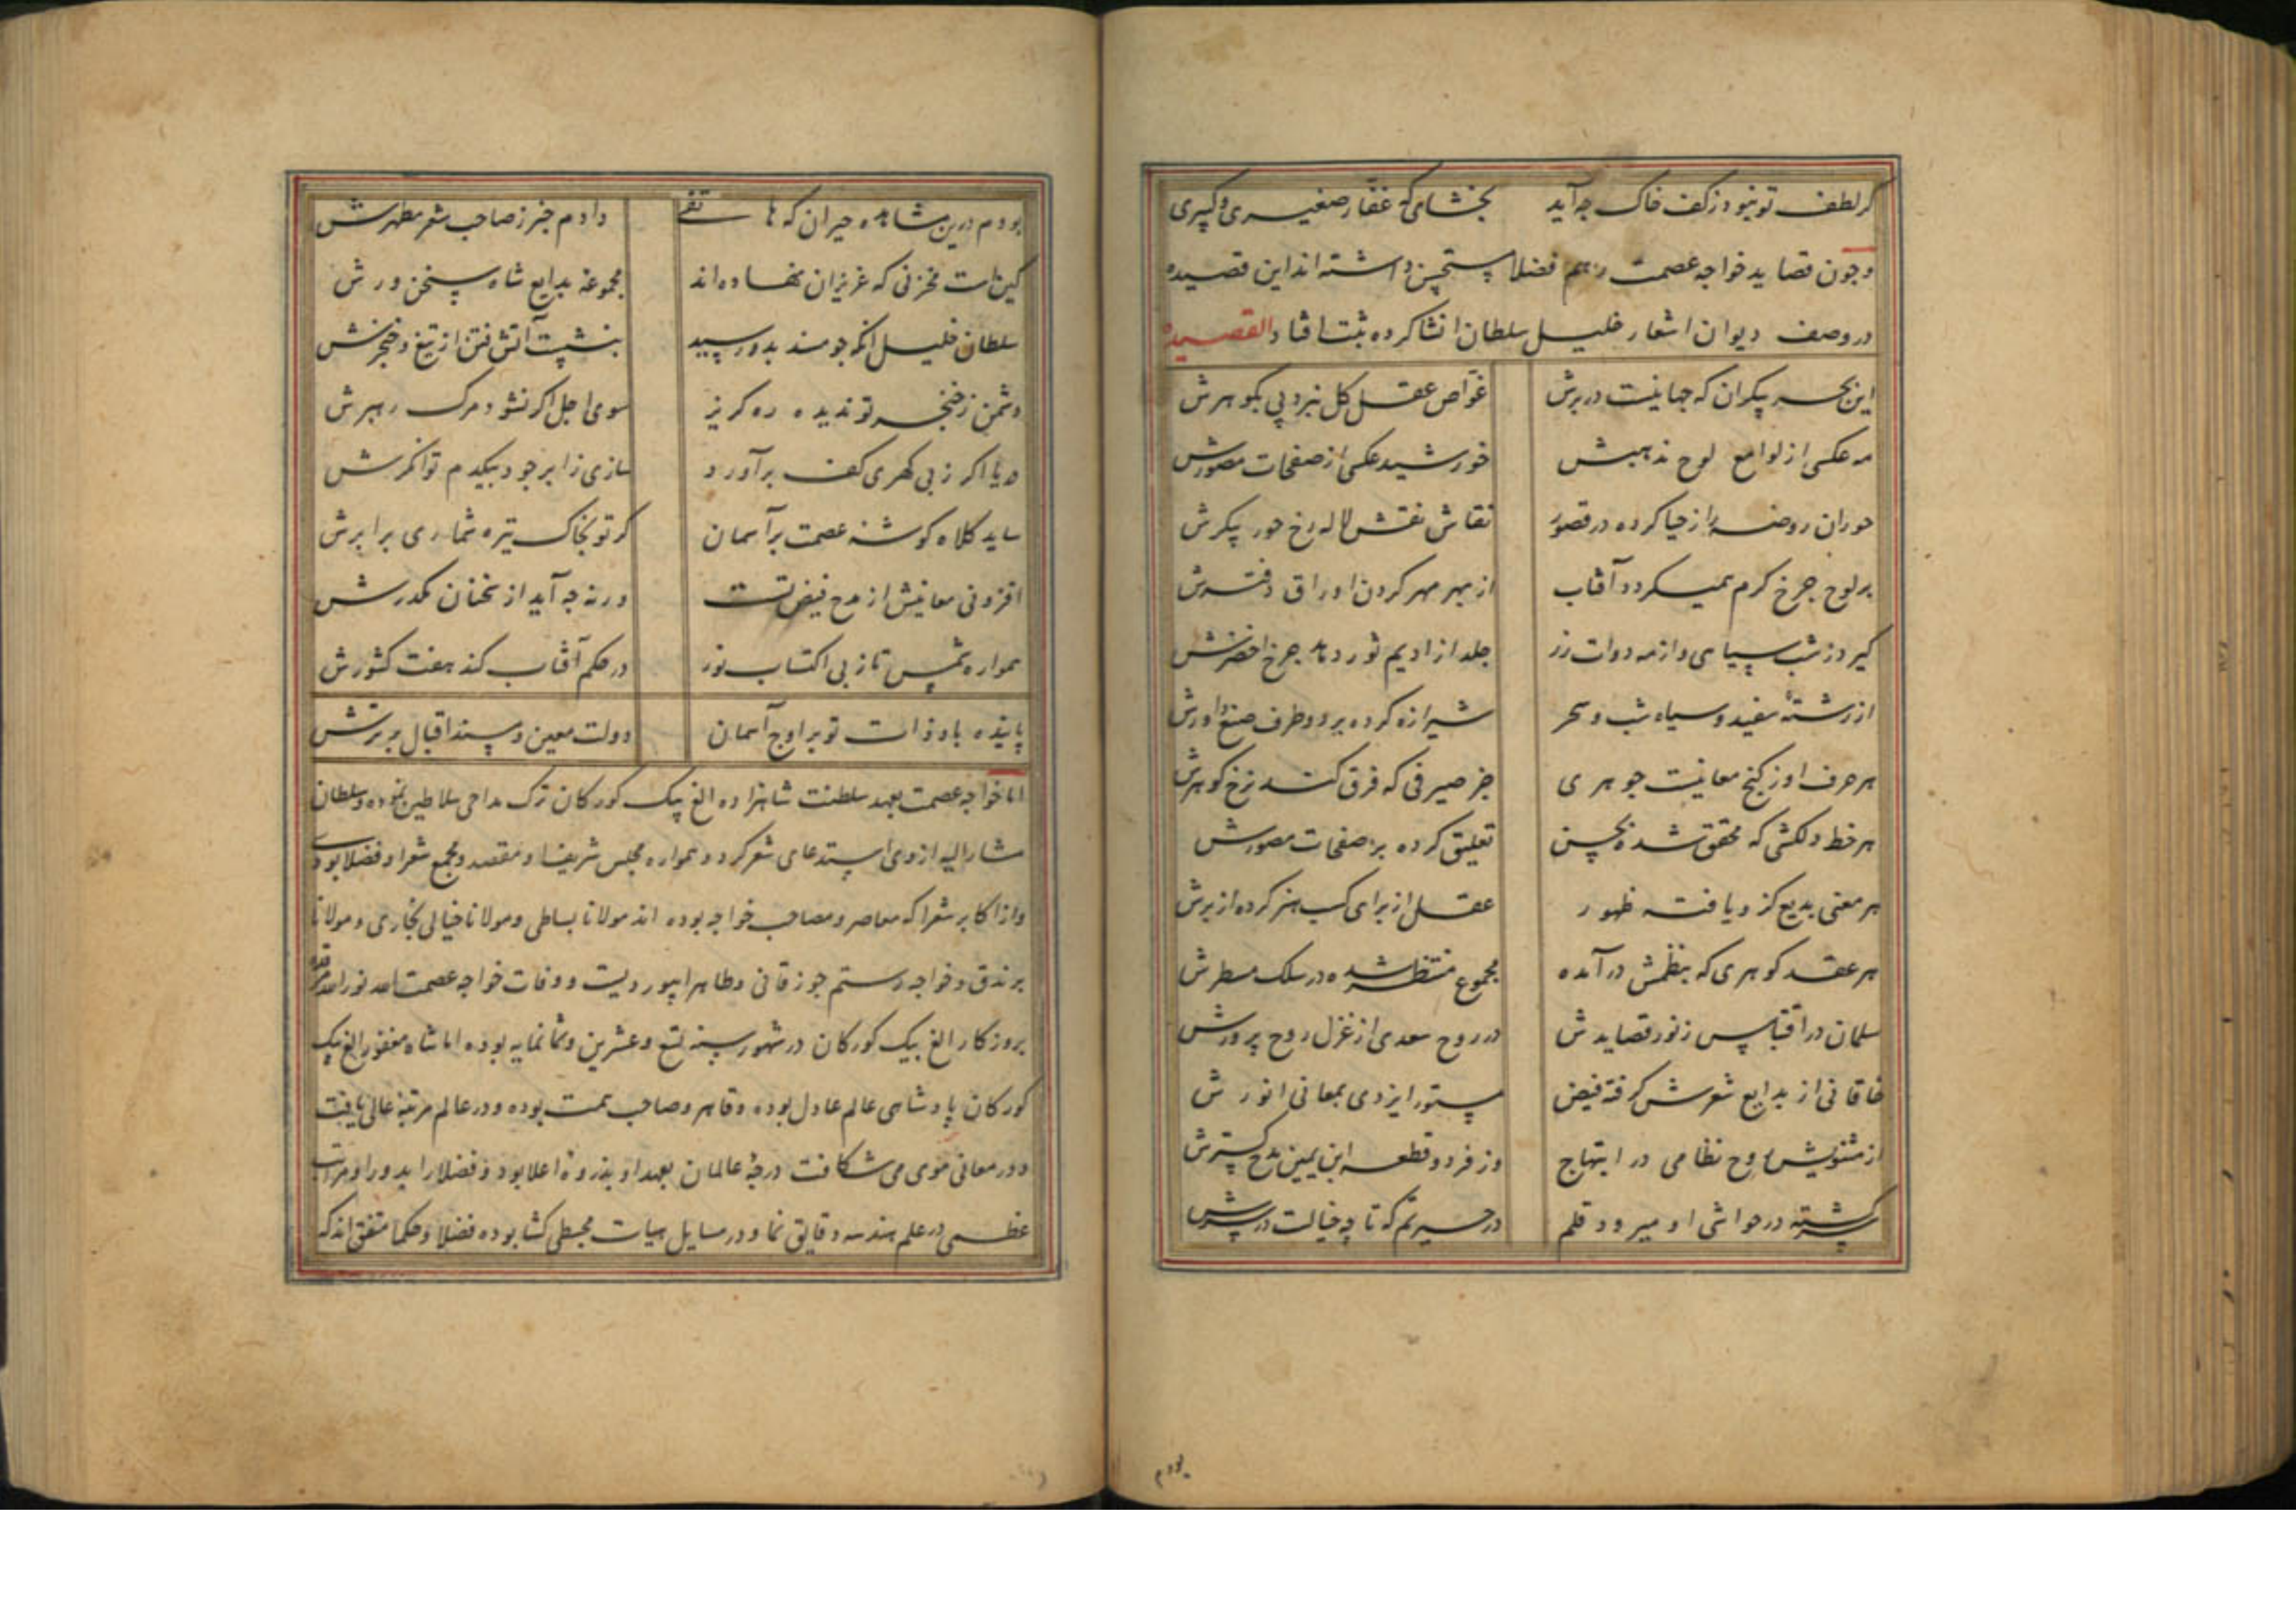 کر لطف تو نبود ز کف خاک چه آید بخشای که غفار صغیری و کبیری
و چون قصاید خواجه عصمت را هم فضلا مستحسن داشته اند این قصیده
در وصف دیوان اشعار خلیل سلطان انشا کرده ثبت افتاد القصیده
این بحر بیکران که جهانیست در برش غواص عقل کل نبرد پی بکوهرش
مه عکسی از لوامع لوح مذهبش خورشید عکسی از صفحات مصورش
حوران روضه را ز حیا کرده در قصور نقاش نقش لاله رخ حور پیکرش
بر لوح چرخ کرم نمیکردد آفتاب از بهر مهر کردن اوراق دفترش
کیرد ز شب سیاهی و از مه دوات زر جلد از ادیم ثور دهد چرخ اخضرش
از رشتهٔ سفید و سیاه شب و سحر شیرازه کرده بر دو طرف صنع داورش
هر حرف او ز کنج معانیست جوهری جز صیرفی که فرق کند نرخ کوهرش
هر خط دلکشی که محقق شده بحسن تعلیق کرده بر صفحات مصورش
هر معنی بدیع کزو یافته ظهور عقل از برای کسب هنر کرده از برش
هر عقد کوهری که بنظمش در آمده مجموع منتظم شده در سلک مسطرش
سلمان در اقتباس ز نور قصایدش در روح سعدی از غزل روح پرورش
خاقانی از بدایع شعرش کرفته فیض دستور ایزدی بمعانی انورش
از مثنویش روح نظامی در ابتهاج وز فرد و قطعه ابن یمین مدح کسترش
سرکشته در حواشی او میرود قلم در حسیرتم که تا چه خیالست در سرش
بودم
بودم درین مشاهده حیران که هاتفی دادم خبر ز صاحب شعر مطهرش
کین است مخزنی که عزیزان نهاده اند مجموعهٔ بدایع شاه سخن ورش
سلطان خلیل انکه چو مسند بدو رسید بنشست آتش فتن از تیغ و خنجرش
دشمن ز خنجر تو ندیده ره کریز سوی اجل اکر نشود مرک رهبرش
دریا اکر ز بی کهری کف برآورد سازی ز ابر جود بیکدم توانکرش
ساید کلاه کوشهٔ عصمت بر آسمان کر تو بخاک تیره شماری برابرش
افزونی معانیش از مدح فیض تست ورنه چه آید از سخنان مکدرش
همواره شمس تا ز پی اکتساب نور در حکم آفتاب کند هفت کشورش
پاینده باد ذات تو بر اوج آسمان دولت معین و مسند اقبال برترش
اما خواجه عصمت بعهد سلطنت شاهزاده الغ بیک کورکان ترک مداحی سلاطین نموده و سلطان
مشار الیه از وی استدعای شعر کرد و همواره مجلس شریف او مقصد و مجمع شعرا و فضلا بودی
و از اکابر شعرا که معاصر و مصاحب خواجه بوده اند مولانا بساطی و مولانا خیالی بخاری و مولانا
برندق و خواجه رستم جوزقانی و طاهر ابیوردیست و وفات خواجه عصمت الله نور الله مرقده
بروزکار الغ بیک کورکان در شهور سنه تسع و عشرین و ثمانمایه بوده اما شاه مغفور الغ بیک
کورکان پادشاهی عالم عادل بوده و قاهر و صاحب همت بوده و در عالم مرتبهٔ عالی یافت
و در معانی موی می شکافت درجهٔ عالمان بعهد او بذروهٔ اعلا بود و فضلا را بدور او مراتب
عظمی در علم هندسه دقایق نما و در مسایل هیات مجسطی کشا بوده فضلا و حکما متفق اند که